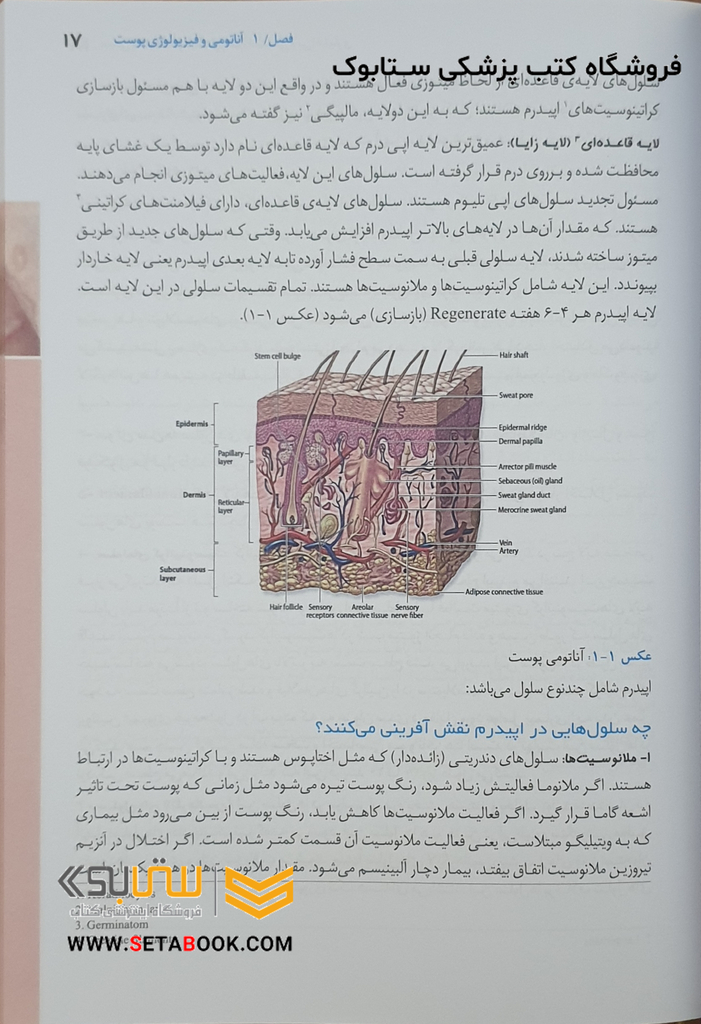 فصل/ ۱ آناتومی و فیزیولوژی پوست
۱۷
فروشگاه کتب پزشکی ستابوک
سلول‌های لایه‌ی قاعده‌ای از لحاظ میتوزی فعال هستند و در واقع این دو لایه با هم مسئول بازسازی
کراتینوسیت‌های۱ اپیدرم هستند؛ که به این دولایه، مالپیگی۲ نیز گفته می‌شود.
لایه قاعده‌ای۳ (لایه زایا): عمیق‌ترین لایه اپی درم که لایه قاعده‌ای نام دارد توسط یک غشای پایه
محافظت شده و برروی درم قرار گرفته است. سلول‌های این لایه،فعالیت‌های میتوزی انجام می‌دهند.
مسئول تجدید سلول‌های اپی تلیوم هستند. سلول‌های لایه‌ی قاعده‌ای، دارای فیلامنت‌های کراتینی۴
هستند. که مقدار آن‌ها در لایه‌های بالاتر اپیدرم افزایش می‌یابد. وقتی که سلول‌های جدید از طریق
میتوز ساخته شدند، لایه سلولی قبلی به سمت سطح فشار آورده تابه لایه بعدی اپیدرم یعنی لایه خاردار
بپیوندد. این لایه شامل کراتینوسیت‌ها و ملانوسیت‌ها هستند. تمام تقسیمات سلولی در این لایه است.
لایه اپیدرم هر ۴-۶ هفته Regenerate (بازسازی) می‌شود (عکس ۱-۱).
Stem cell bulge
Hair shaft
Sweat pore
Epidermis
Epidermal ridge
Dermal papilla
Papillary
layer
Arrector pili muscle
Sebaceous (oil) gland
Dermis
Sweat gland duct
Reticular
layer
Merocrine sweat gland
Vein
Artery
Subcutaneous
layer
Adipose connective tissue
Hair follicle
Sensory
receptors
Areolar
connective tissue
Sensory
nerve fiber
عکس ۱-۱: آناتومی پوست
اپیدرم شامل چندنوع سلول می‌باشد:
چه سلول‌هایی در اپیدرم نقش آفرینی می‌کنند؟
۱- ملانوسیت‌ها: سلول‌های دندریتی (زائده‌دار) که مثل اختاپوس هستند و با کراتینوسیت‌ها در ارتباط
هستند. اگر ملانوما فعالیتش زیاد شود، رنگ پوست تیره می‌شود مثل زمانی که پوست تحت تاثیر
اشعه گاما قرار گیرد. اگر فعالیت ملانوسیت‌ها کاهش یابد، رنگ پوست از بین می‌رود مثل بیماری
که به ویتیلیگو مبتلاست، یعنی فعالیت ملانوسیت آن قسمت کمتر شده است. اگر اختلال در آنزیم
تیروزین ملانوسیت اتفاق بیفتد، بیمار دچار آلبینیسم می‌شود. مقدار ملانوسیت‌ها در
ستابوک
فروشگاه اینترنتی کتاب
3. Germinatom
WWW.SETABOOK.COM